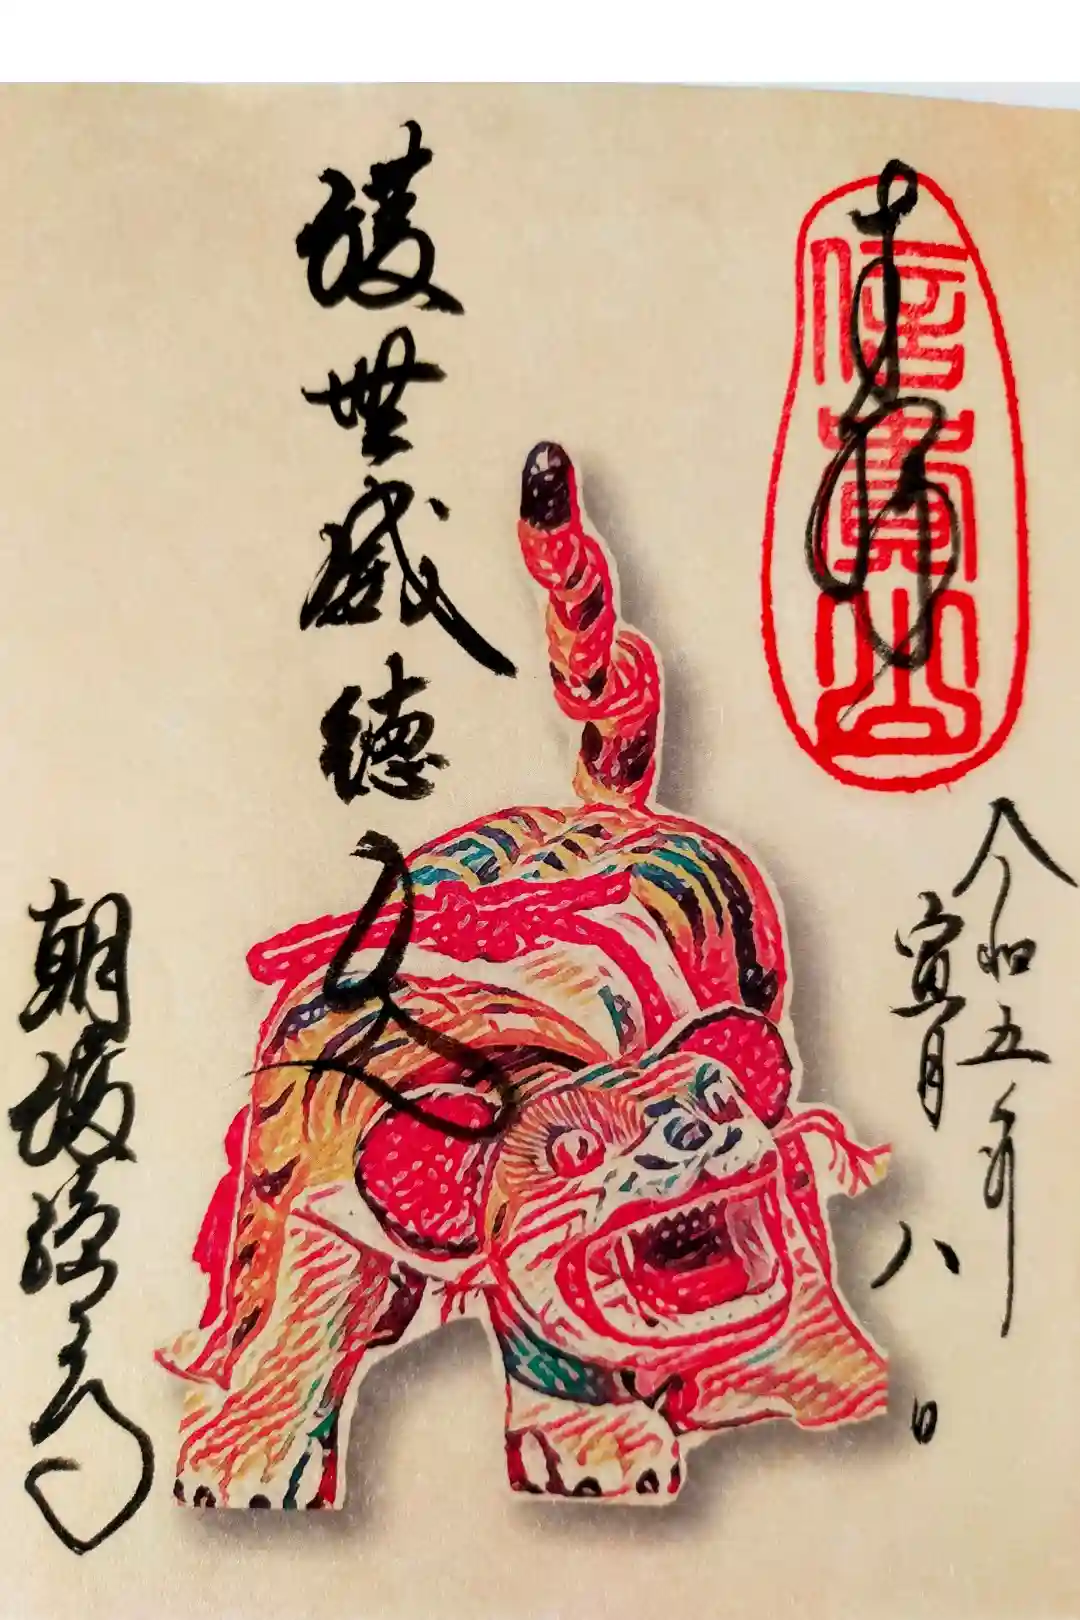 奉拝
信貴山
令和五年
寅月八日
護世威徳天
朝護孫子寺